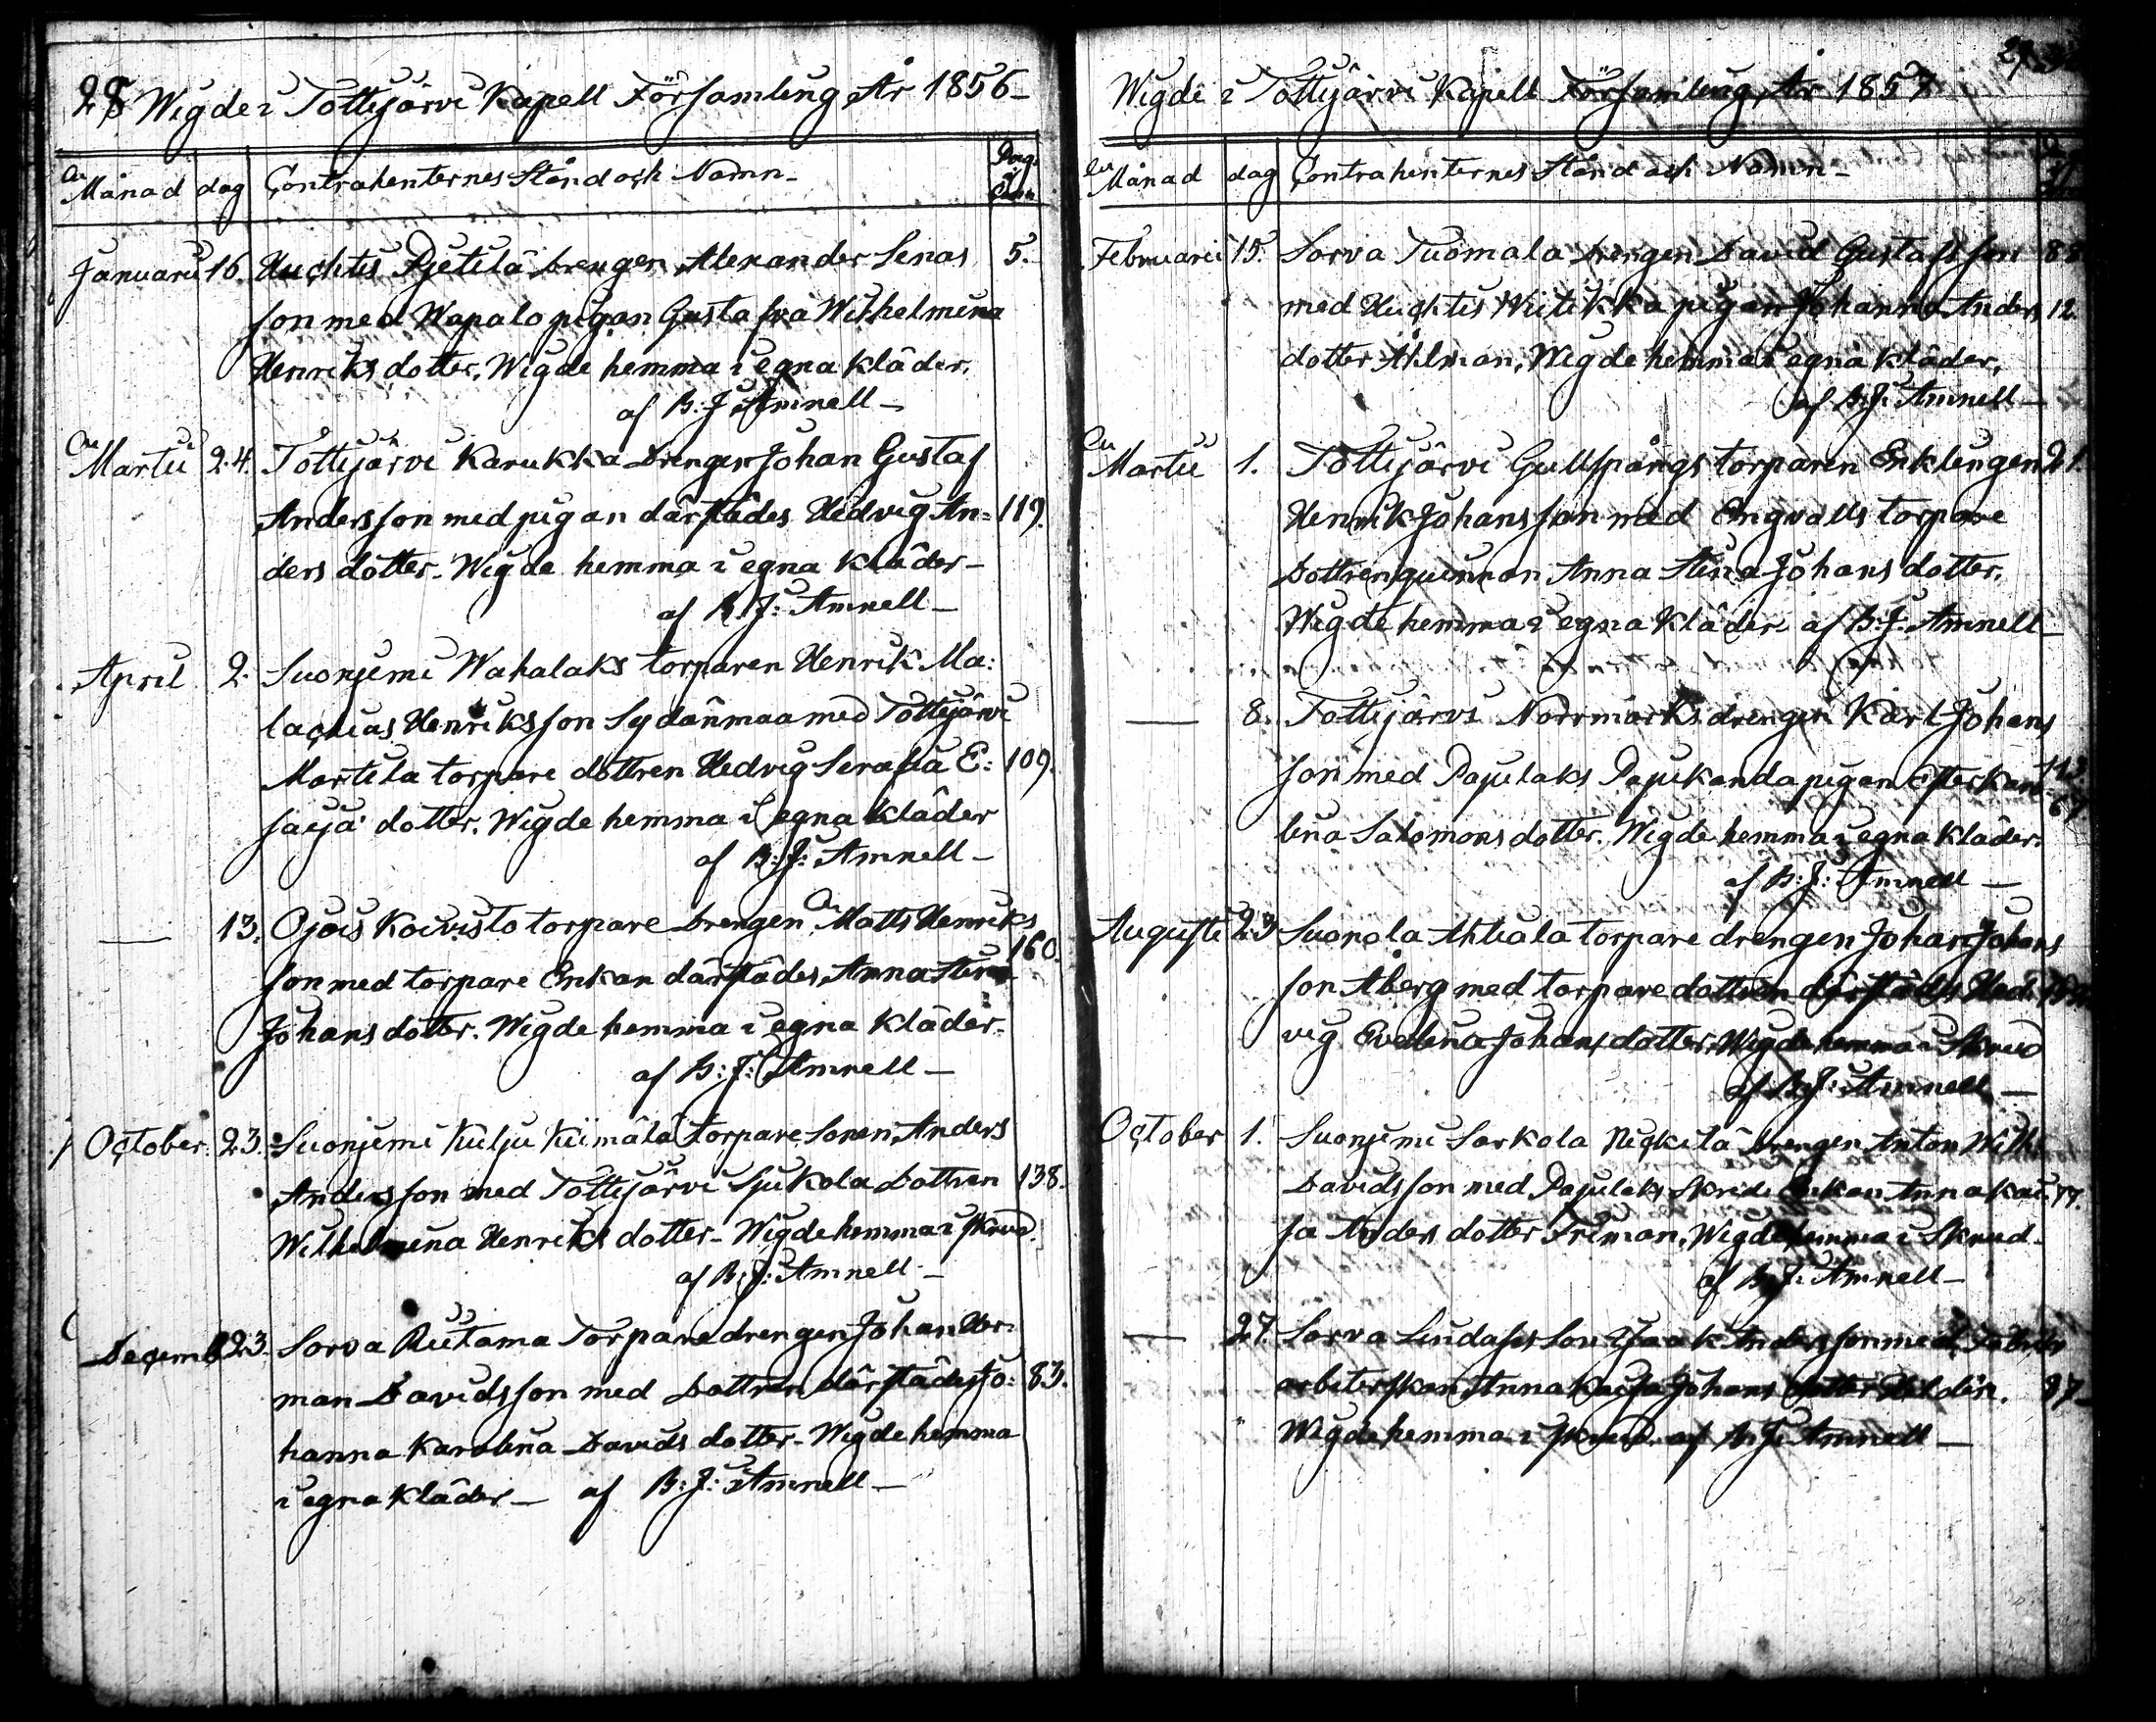 28 Wigde i Tottijärvi Kapell Församling År 1856
Månad dag Contrahenternes Stånd och Namn Pag.
Januarii 16. Huchtis Pjetilä drengen Alexander Senas 5.
son med Wapalo pigan Gustafva Wilhelmina
Henriksdotter. Wigde hemma i egna kläder.
af B: J: Amnell
Martii 24. Tottijärvi Karukka Drengen Johan Gustaf
Andersson med pigan därstädes Hedvig An= 119.
ders dotter. Wigde hemma i egna kläder
af B: J: Amnell
April 2. Suonjemi Wahalaks torparen Henrik Ma:
lachias Henriksson Sydänmaa med Tottijärvi
Martila torpare dottren Hedvig Serafia E: 109.
saija dotter. Wigde hemma i egna kläder
af B: J: Amnell
— 13. Ojois Koivisto torpare Drengen Matts Henriks
160.
son med torpare Enkan därstädes Anna Stina
Johans dotter. Wigde hemma i egna kläder.
af B: J: Amnell
October. 23. Suonjemi Kulju Kiimälä torpare Sonen Anders
Andersson med Tottijärvi Sjukola Dottren 138.
Wilhelmina Henriks dotter. Wigde hemma i skrud.
af B: J: Amnell
Decemb 23. Sorva Riitama Torpare drengen Johan Her:
man Davidsson med Dottren därstädes Jo: 83.
hanna Karolina Davids dotter. Wigde hemma
i egna kläder af B: J: Amnell
29
Wigde i Tottijärvi Kapell Församling, År 1857
Månad dag Contrahenternes Stånd och Namn
Februarii 15. Sorva Tuomala Drengen David Gustafsson 88
med Huchtis Wiitikka pigan Johanna Anders 12.
dotter Ahlman. Wigde hemma i egna kläder.
af B: J: Amnell
Martii 1. Tottijärvi Gullspångs torparen Enklingen 21.
Henrik Johansson med Engvalls torpare
Dottren quinnan Anna Stina Johans dotter.
Wigde hemma i egna kläder af B: J: Amnell
— 8. Tottijärvi Norrmarks drengen Karl Johans
son med Pajulaks Pajukanda pigan Esterkaro 113.
67
lina Salomons dotter. Wigde hemma i egna kläder.
af B: J: Amnell
Augusti 23 Suonola Ahtiala torpare drengen Johan Johans
son Åberg med torpare dottren därstädes Hed:
vig Evelina Johans dotter. Wigde hemma i Skrud
af B: J: Amnell
October 1. Suonjemi Sarkola Nickilä Drengen Anton Wilh
Davidsson med Pajulaks Enkan Anna Kai: 77.
sa Anders dotter Friman. Wigde hemma i Skrud.
af B: J: Amnell
— 27. Sorva Lindafors Son Isaak Andersson med Fabriks
arbeterskan Anna Kaisa Johans dotter 87
Wigde hemma i skrud. af B: J: Amnell